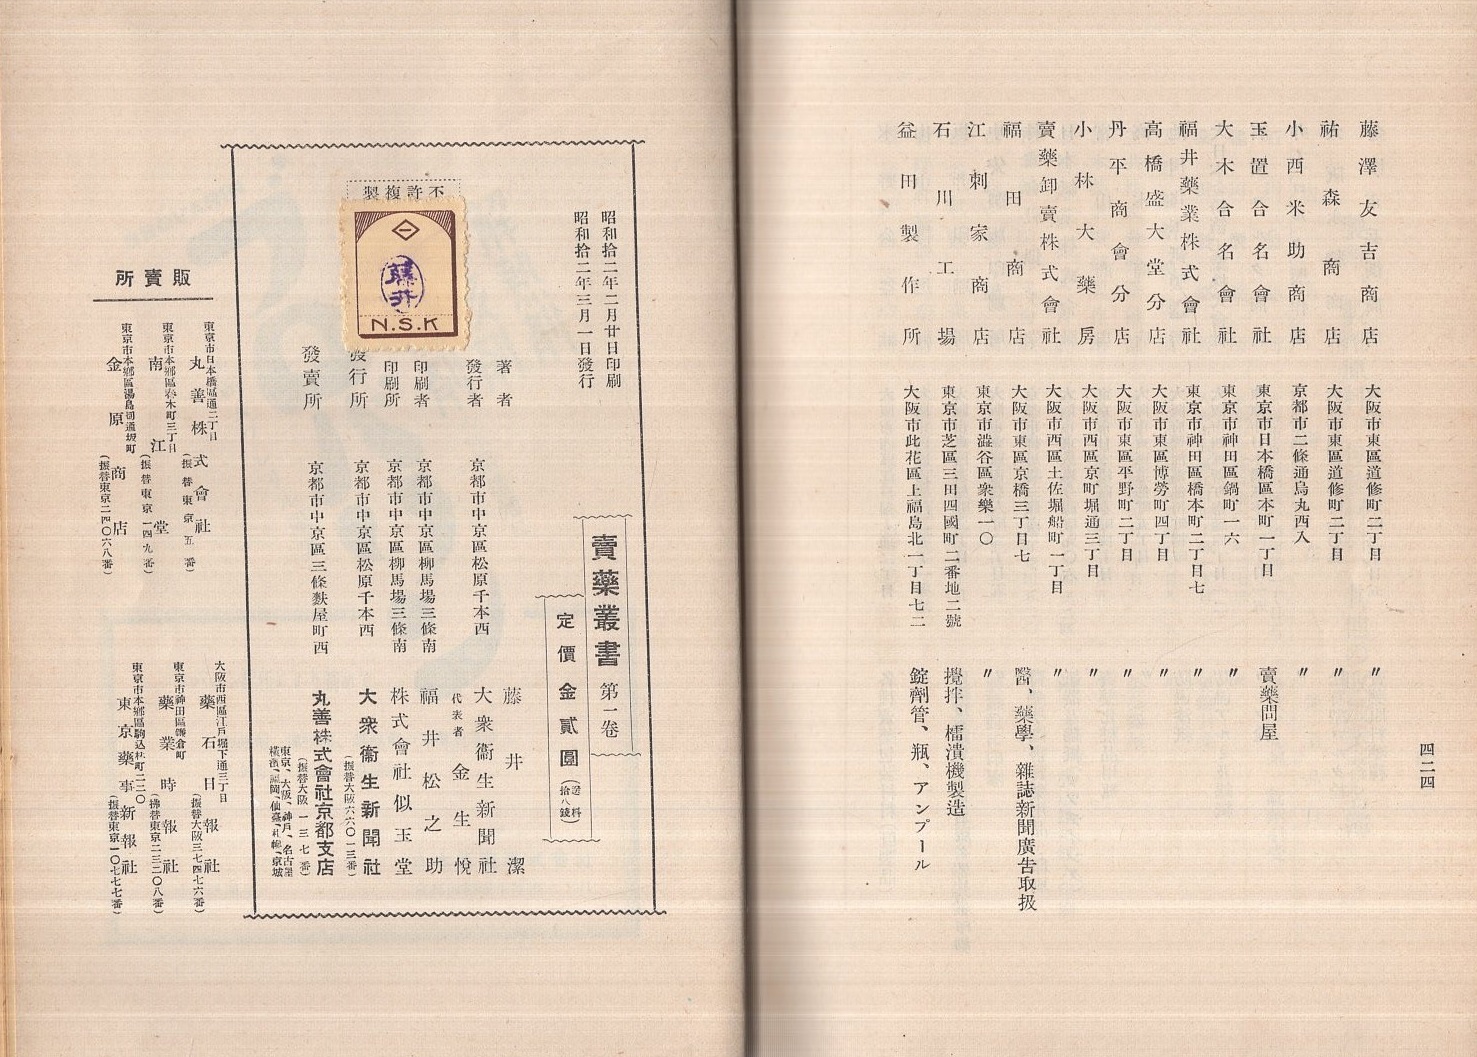 四二四
藤澤友吉商店 大阪市東區道修町二丁目 〃
祐森商店 大阪市東區道修町二丁目 〃
小西米助商店 京都市二條通烏丸西入 〃
玉置合名會社 東京市日本橋區本町一丁目 賣藥問屋
大木合名會社 東京市神田區鍋町一六 〃
福井藥業株式會社 東京市神田區橋本町二丁目七 〃
高橋盛大堂分店 大阪市東區博勞町四丁目 〃
丹平商會分店 大阪市東區平野町二丁目 〃
小林大藥房 大阪市西區京町堀通三丁目 〃
賣藥卸賣株式會社 大阪市西區土佐堀船町一丁目 〃
福田商店 大阪市東區京橋三丁目七 醫、藥學、雜誌新聞廣告取扱
江刺家商店 東京市澁谷區衆樂一〇 〃
石川工場 東京市芝區三田四國町二番地二號 攪拌、擂潰機製造
益田製作所 大阪市此花區上福島北一丁目七二 錠劑管、瓶、アンプール
昭和拾二年二月廿日印刷
昭和拾二年三月一日發行
賣藥叢書 第一卷
定價金貳圓
(送料拾八錢)
不許複製
藤井
N.S.K
著者 藤井潔
發行者 京都市中京區松原千本西 大衆衞生新聞社
代表者 金生悅
印刷者 京都市中京區柳馬場三條南 福井松之助
印刷所 京都市中京區柳馬場三條南 株式會社似玉堂
發行所 京都市中京區松原千本西 大衆衞生新聞社
(振替大阪六六〇一三番)
發賣所 京都市中京區三條麩屋町西 丸善株式會社京都支店
(振替大阪一三七番)
東京、大阪、神戶、名古屋
橫濱、福岡、仙臺、札幌、京城
販賣所
東京市日本橋區通二丁目
丸善株式會社
(振替東京五番)
東京市本鄕區春木町三丁目
南江堂
(振替東京一四九番)
東京市本鄕區湯島切通坂町
金原商店
(振替東京二四〇六八番)
大阪市西區江戶堀下通三丁目
藥石日報社
(振替大阪三七四七六番)
東京市神田區鎌倉町
藥業時報社
(振替東京二三三〇八番)
東京市本鄕區駒込林町二三〇
東京藥事新報社
(振替東京一〇七七七番)